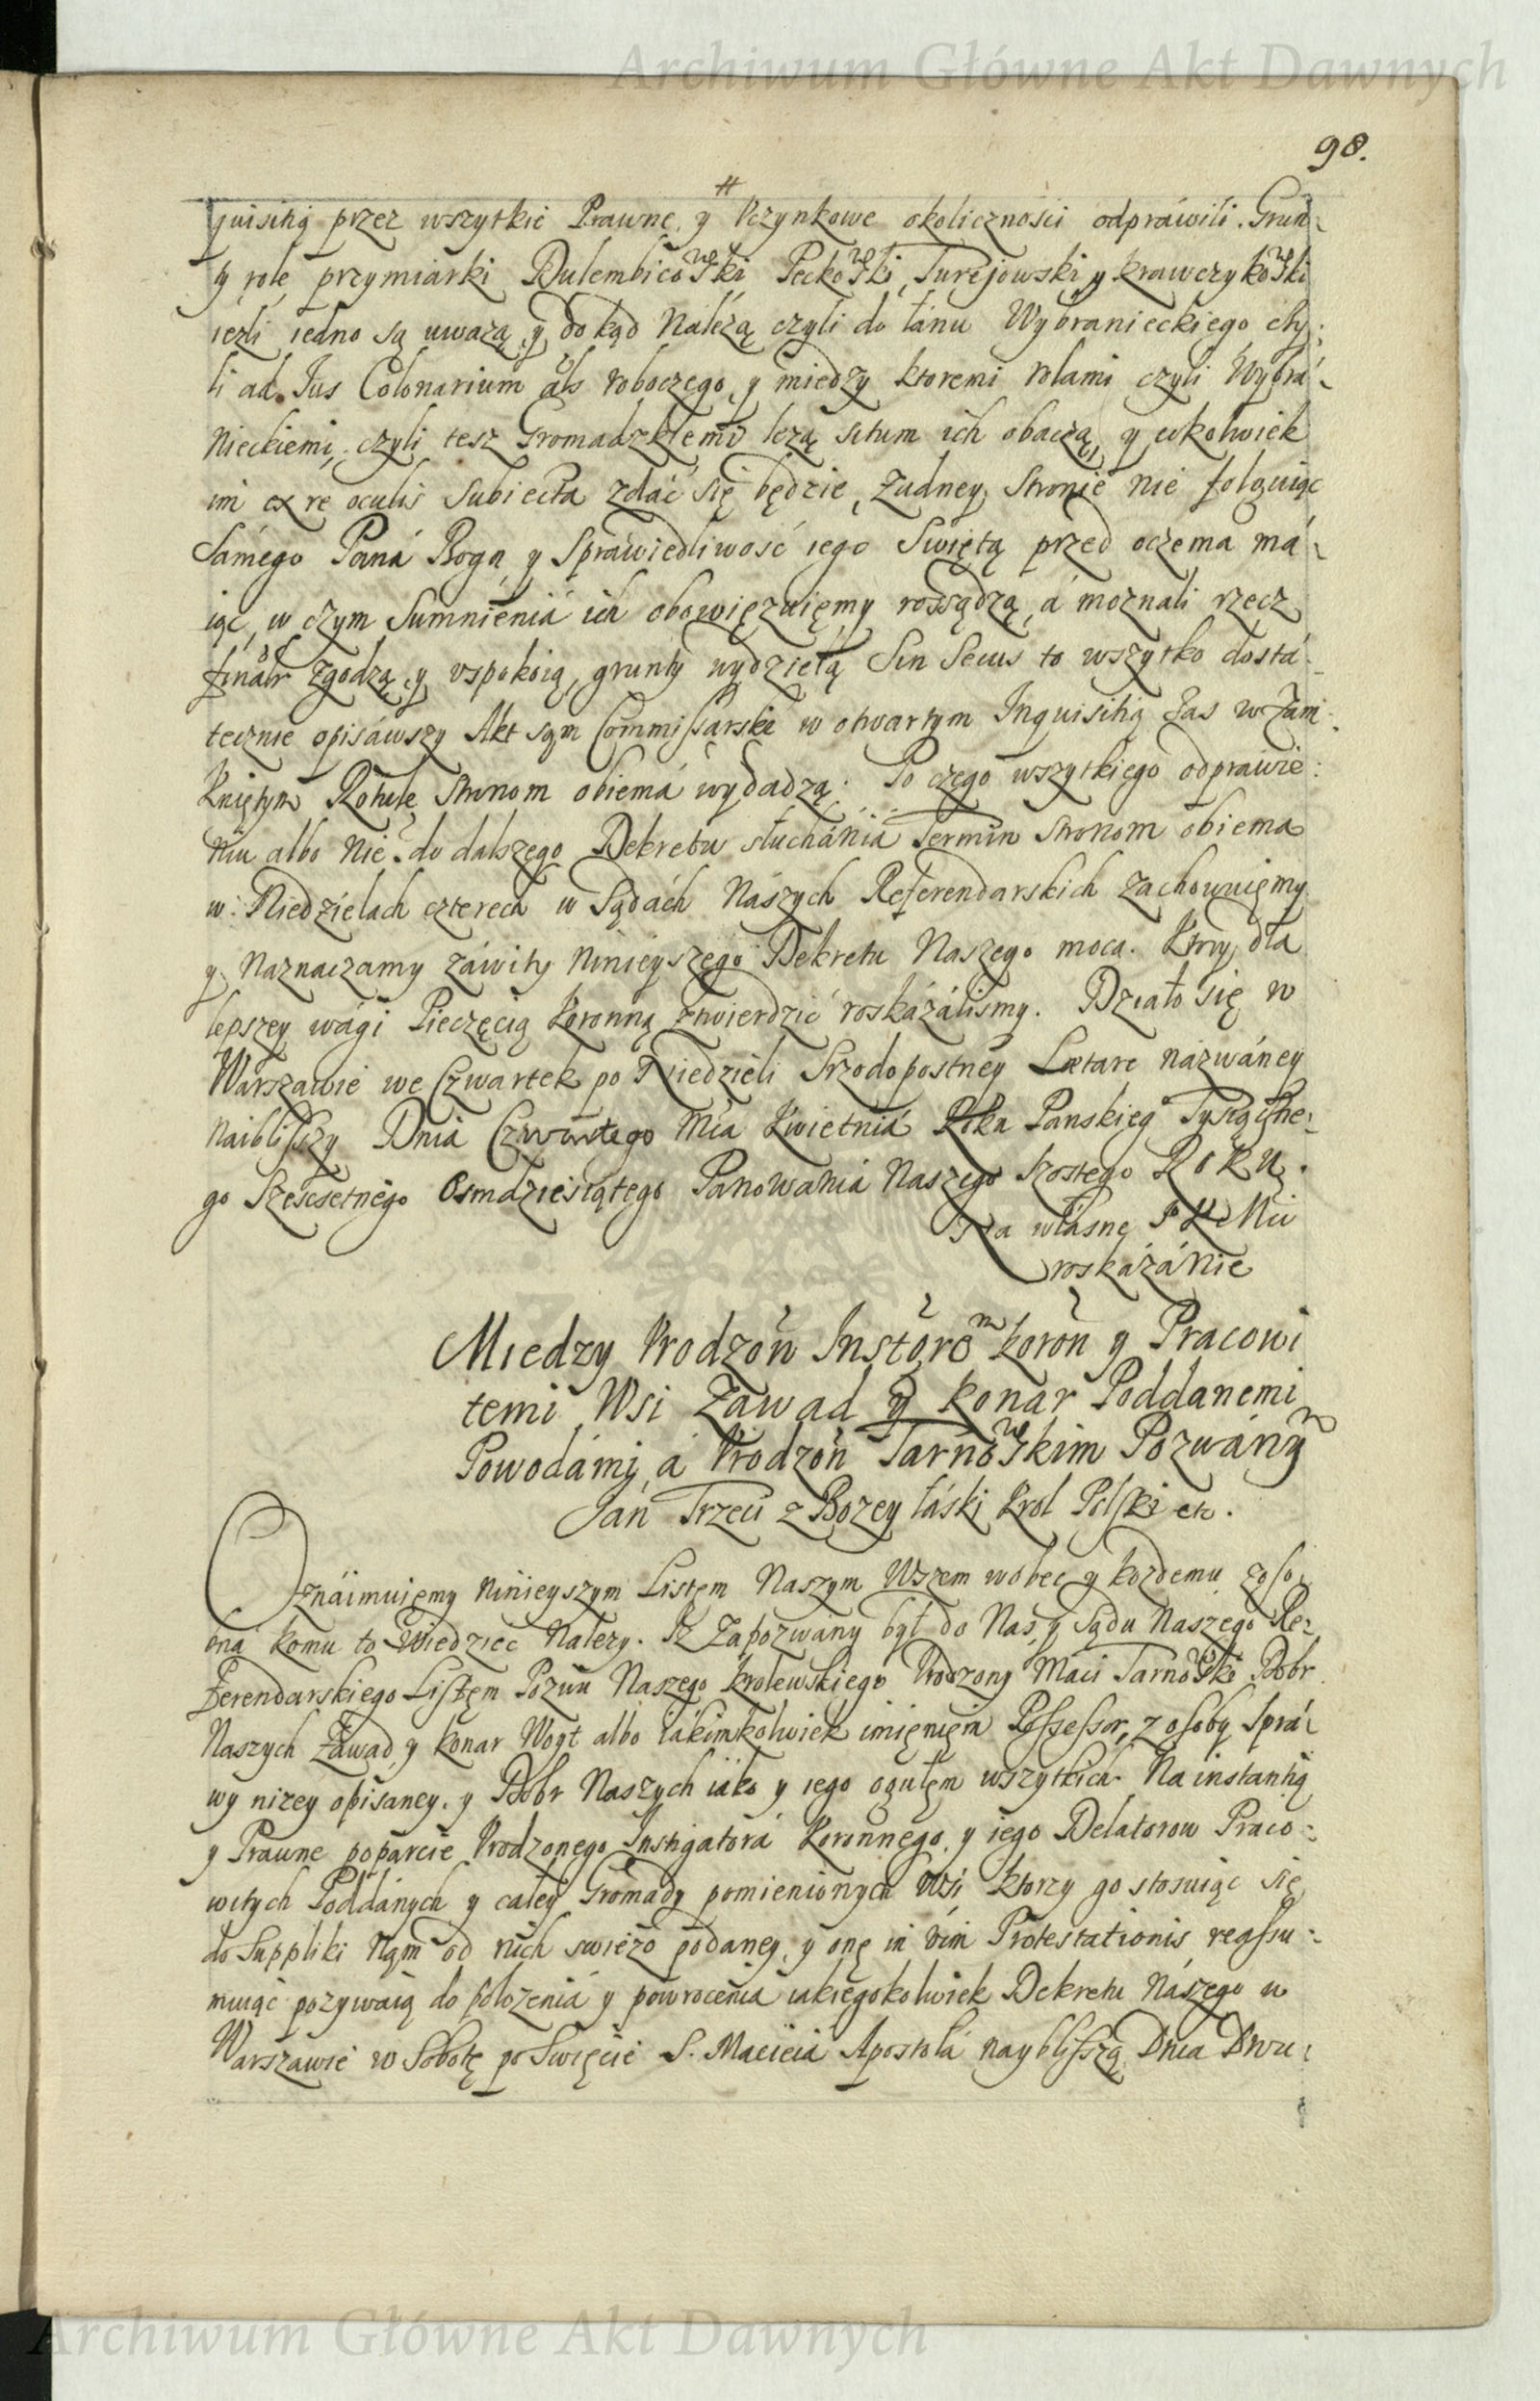 Archiwum Główne Akt Dawnych
98.
quisitią przez wszytkie Prawne, y Vczynkowe okolicznosci odpráwili. Grun-
ty role przymiarki Dulembicowski Peckowski, Turejowski y Krawczykowski
iezli iedno są uwazą, y dokąd Nalezą czyli do łánu Wybranieckiego czy-
li ad Ius Colonarium als roboczego, y miedzy ktoremi rolami czyli Wybra-
nieckiemi, czyli tesz Gromadzkiemi lezą situm ich obaczą, y cokolwiek
im ex re oculis subiecta zdáć się będzie, Zadney stronie nie folguiąc
Sámego Paná Boga y Spráwiedliwość iego Swiętą przed oczema má-
iąc, w czym Sumnieniá ich obowięzuięmy rossądzą, á moznali rzecz
finalr zgodzą, y vspokoią, grunty wydzielą Sin Secus to wszytko dostá-
tecznie opisáwszy Akt sąm Commissarski w otwartym Inquisitią Zas w Zam-
kniętym Rotule stronom obiemá wydadzą. Po czego wszytkiego odpráwie-
niu albo nie do dalszego Dekretu słuchániá Termin stronom obiema
w Niedzielach czterech w Sądách Nászych Referendarskich zachowuięmy
y Naznaczamy záwity Ninieyszego Dekretu Naszego mocą. Ktory dla
lepszey wági Pieczęcią Koronną ztwierdzić roskázálismy. Działo się w
Wárszawie we Czwartek po Niedzieli Srzodopostney Lætare názwáney
naiblisszy Dniá Czwartego Mca Kwietniá Roku Panskieg Tysiącne-
go Szescsetnego Osmdziesiątego Panowania Naszego Szostego Roku.
Na własne J K Mci
roskázánie
Miedzy Vrodzon Instgro Koron y Pracowi
temi Wsi Zawad y Konar Poddanemi
Powodámi á Vrodzon Tarnowskim Pozwánym
Ján Trzeci z Bozey łáski Krol Polski etc.
Oznáimuięmy Ninieyszym Listęm Naszym Wszem wobec y kozdemu zoso-
bná komu to Wiedziec Nalezy. Iz Zapozwány był do Nas, y Sądu Naszego Re-
ferendarskiego Listęm Pozwu Naszego Krolewskiego Vrodzony Maci Tarnowski Dobr
Naszych Zawad y Konar Woyt albo iákimkolwiek imięnięm Possessor, z osoby Sprá-
wy nizey opisaney, y Dobr Naszych iáko y iego ogułęm wszytkich. Na instantią
y Prawne poparcie Vrodzonego Instigatorá Koronnego, y iego Delatorow Praco-
witych Poddánych y całey Gromady pomienionych Wsi ktorzy go stosuiąc się
do Suppliki Nąm od nich swiezo podaney, y onę in vim Protestationis reassu-
muiąc pozywaią do połozeniá y powrocenia iakiegokolwiek Dekretu Nászego w
Warszawie w Sobotę po Swięcie S. Macieiá Apostołá nayblisszą Dnia Dwu-
Archiwum Główne Akt Dawnych